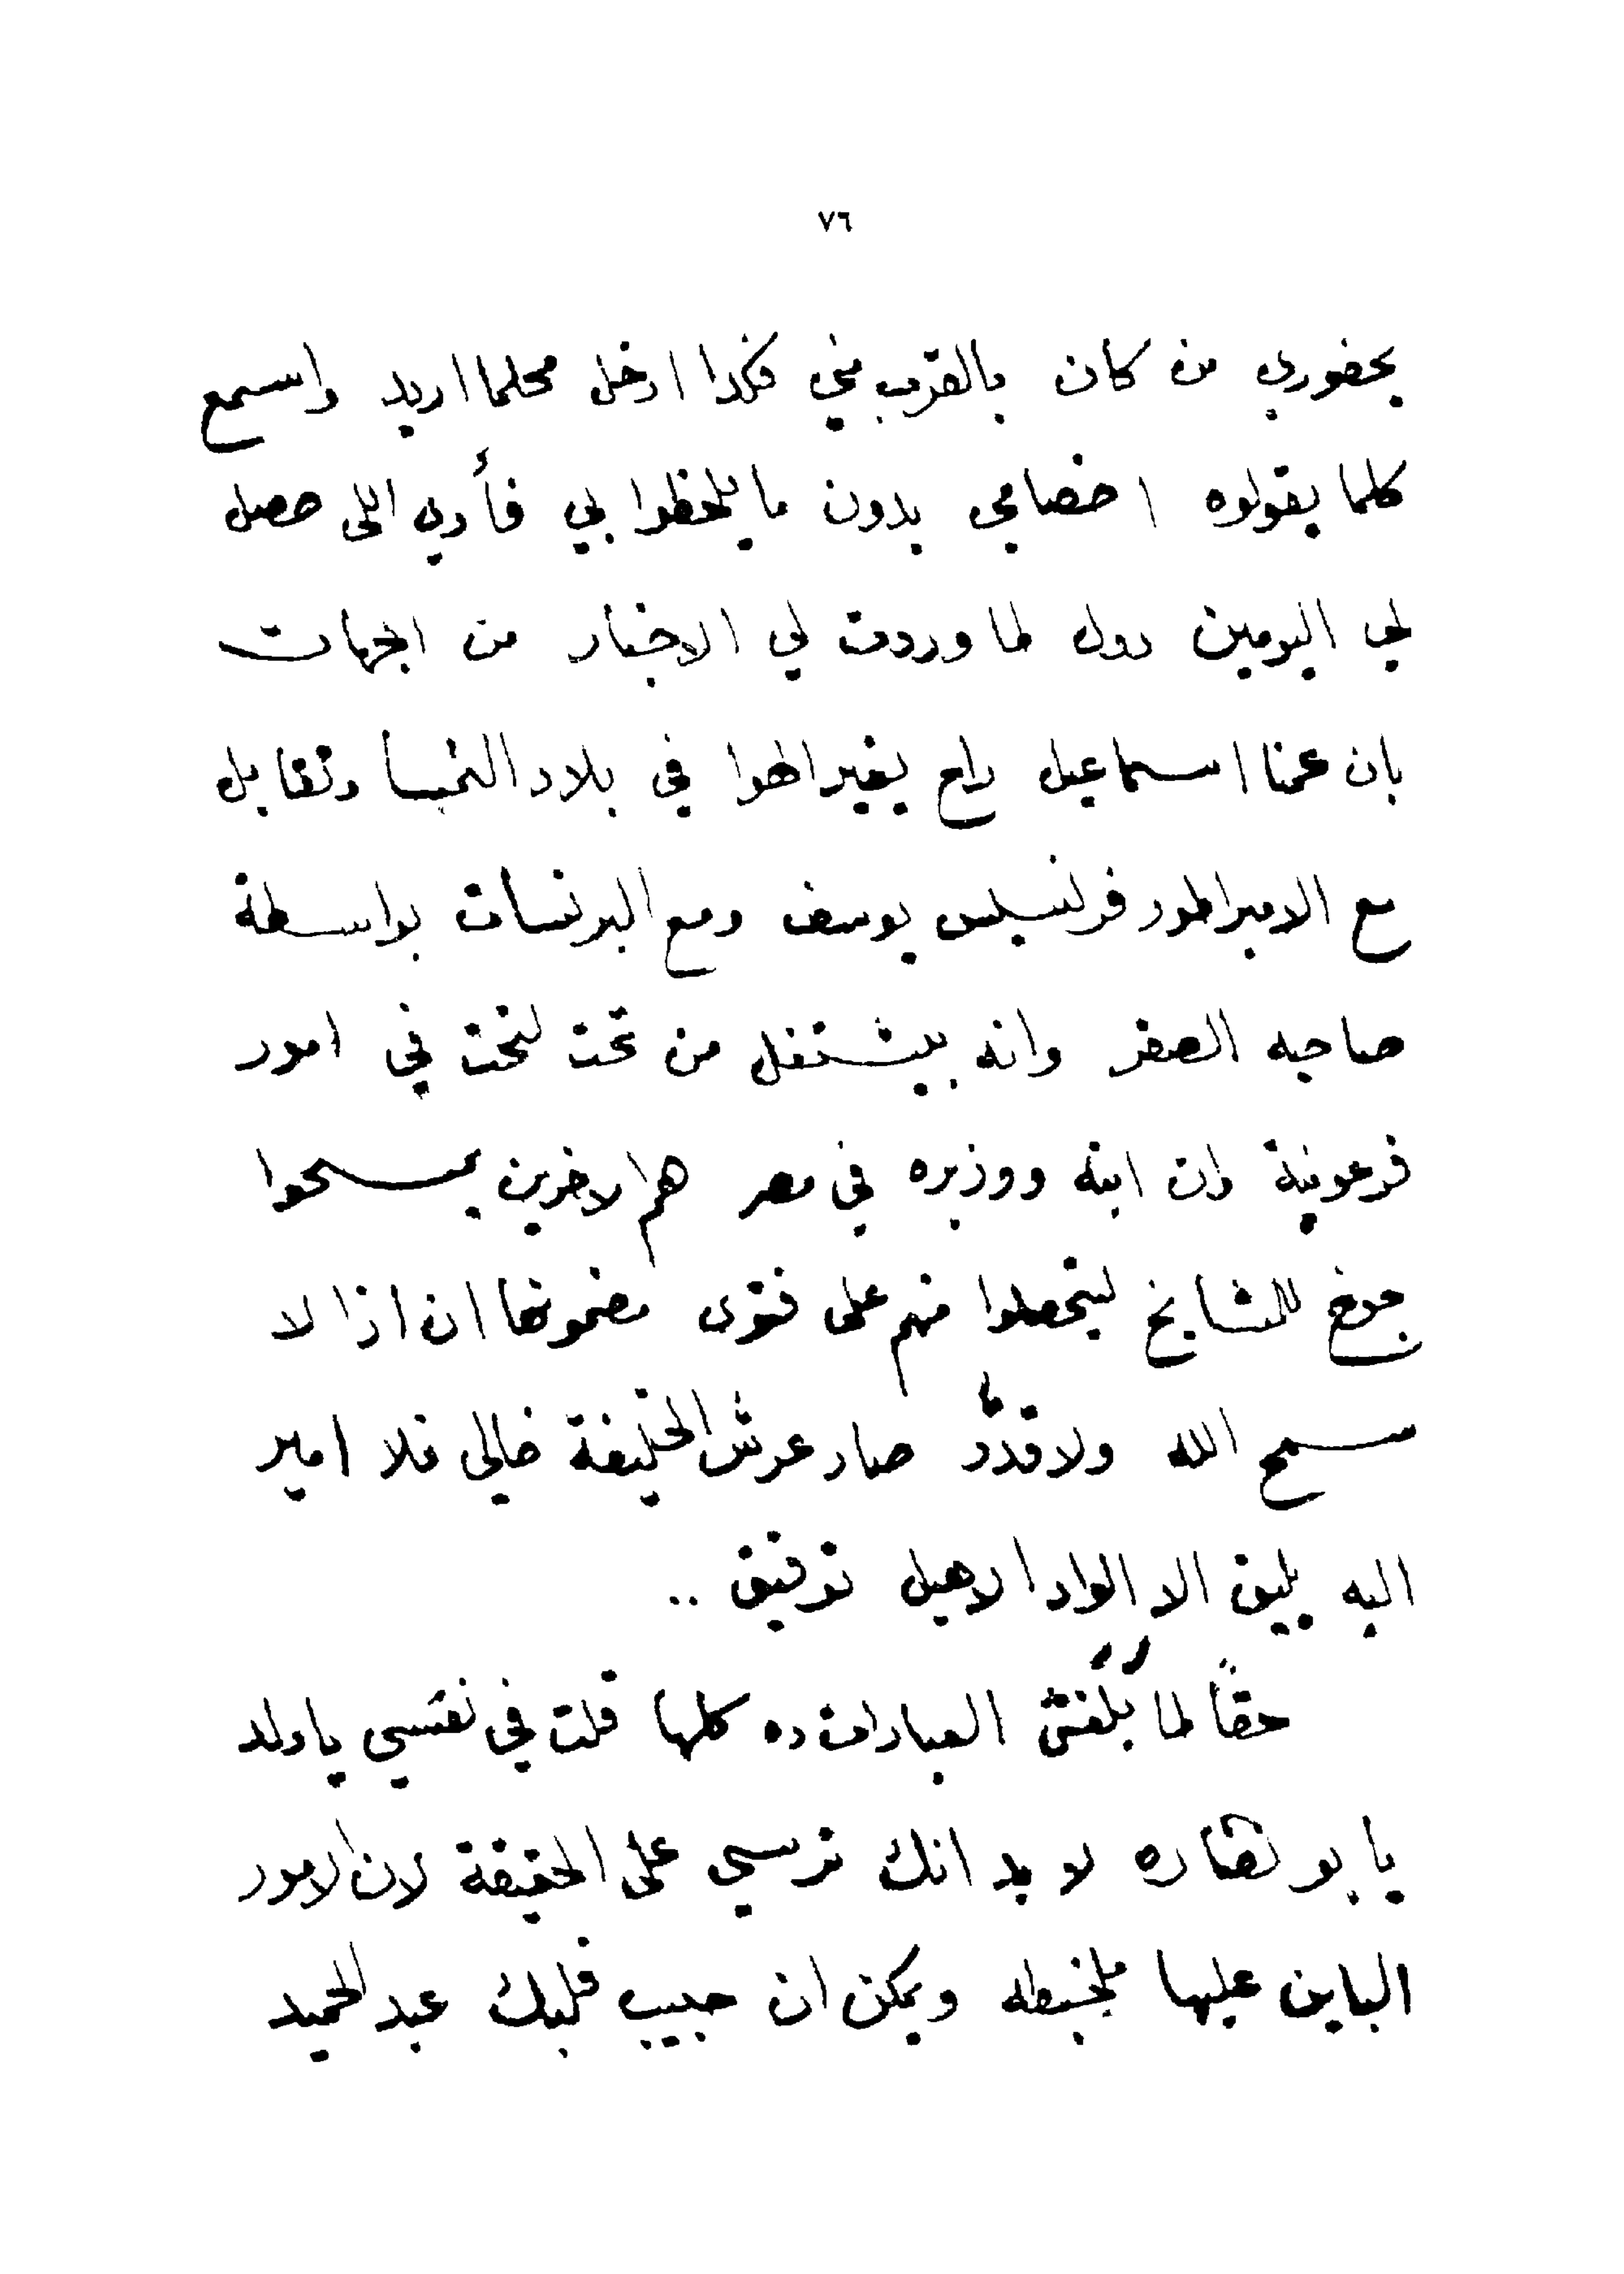 ٧٦
بحضوري من كان بالقرب مني فكدا ادخل محلما اريد واسمع
كلما يقولوه اخصامي بدون ما يلحظوا بي فأدي اللى حصل
لي اليومين دول لما وردت لي الاخبار من الجهات
بان عمنا اسماعيل راح يغير الهوا في بلاد النمسا وتقابل
مع الامبراطور فرنسيس يوسف ومع البرنسات بواسطة
صاحبه الصغر وانه بيشتغل من تحت لتحت في امور
فرعونية وان ابنه ووزيره في مصر هم الاخرين يمسحوا
جوخ للمشايخ ليتحصلوا منهم على فتوى مضمونها ان اذا لا
سمح الله ولا قدر صار عرش الخليفة خالي فلا امير
اليه يليق الا الواد الاهبل توفيق ..
حقاً لما بلغتني العبارات ده كلها قلت في نفسي يا ولد
يا بو نضاره لا بد انك ترسي على الحقيقة لان الامور
الباين عليها ملخبطه ويمكن ان حبيب قلبك عبد الحميد